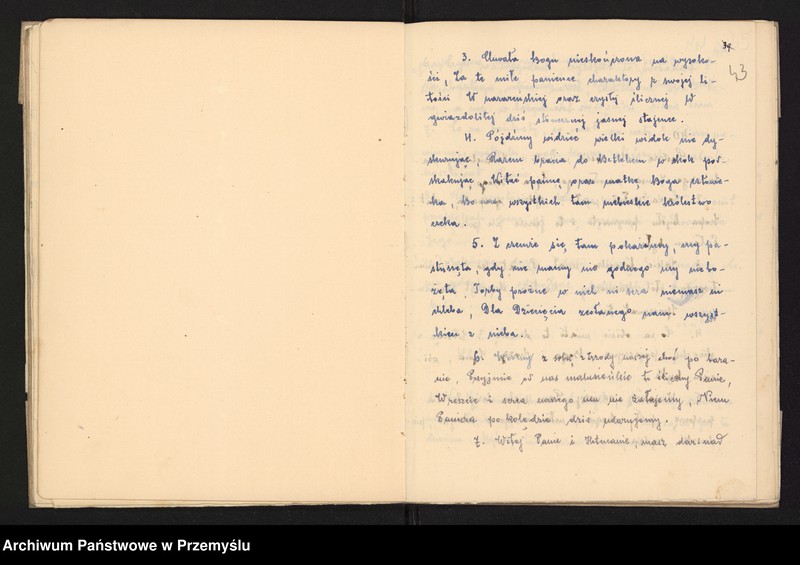 34
43
3. Chwała Bogu nieskończona na wysoko-
ści, Za te miłe panience charaktery z swojej li-
tości W nazareńskiej oraz czystej ślicznej W
gwiazdolitej dziś słomianej jasnej stajence.
4. Pójdźmy widzieć wielki widok nie dy-
skurując, Razem bracia do Betlehem w skok pos-
skakując, Witać pannę oraz matkę Boga człowie-
ka, Bo nas wszystkich tam niebieskie królestwo
czeka.
5. Z czemże się tam pokażemy, my pa-
stuszęta, gdy nie mamy nic godnego my niebo-
żęta, Torby próżne w nich ni sera niemasz ni
chleba, Dla Dziecięcia zesłanego nam wszyst-
kiem z nieba.
6. Weźmy z sobą z trzody naszej choć po bara-
nie, Przyjmie od nas maluśieńkie to śliczny Panie,
Wreszcie i serca naszego mu nie żałujemy, Niem
Panicza po kolędzie dziś udarujemy.
7. Witaj Panie i Hetmanie, masz dar nad
Archiwum Państwowe w Przemyślu